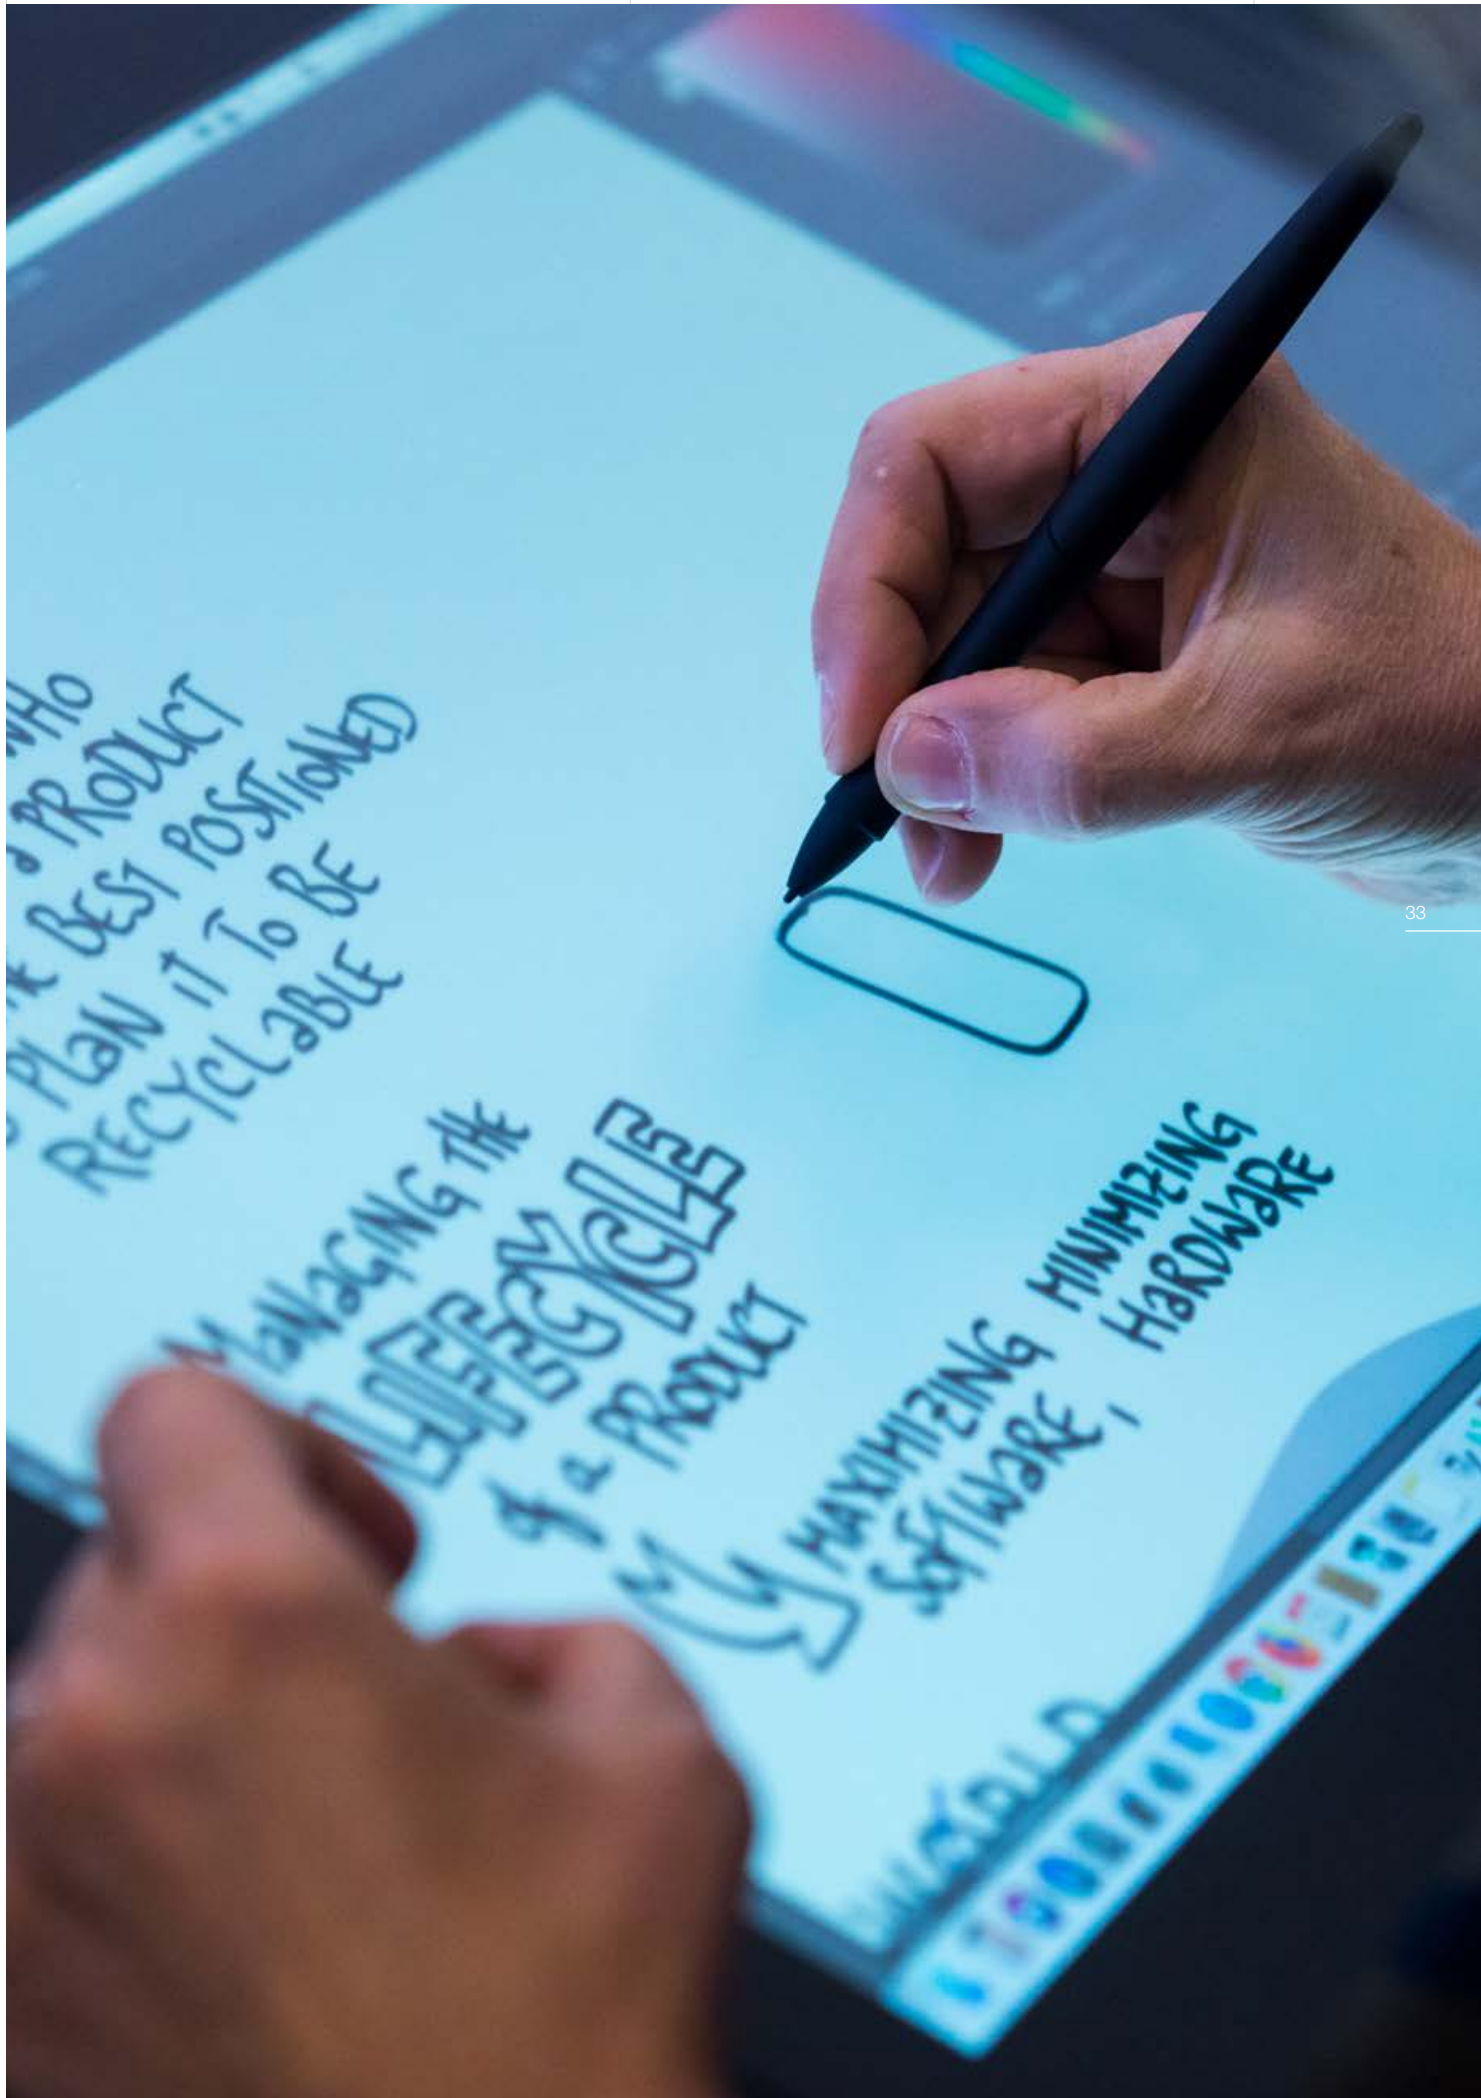 WHO
a PRODUCT
BEST POSITIONED
PLaN iT To BE
RECYCLaBLE
MaNaGING THE
LIFECYCLE
of a PRODUCT
MAXIMIZING
SOFTWaRE,
MINIMIZING
HaRDWaRE
WORLD
33